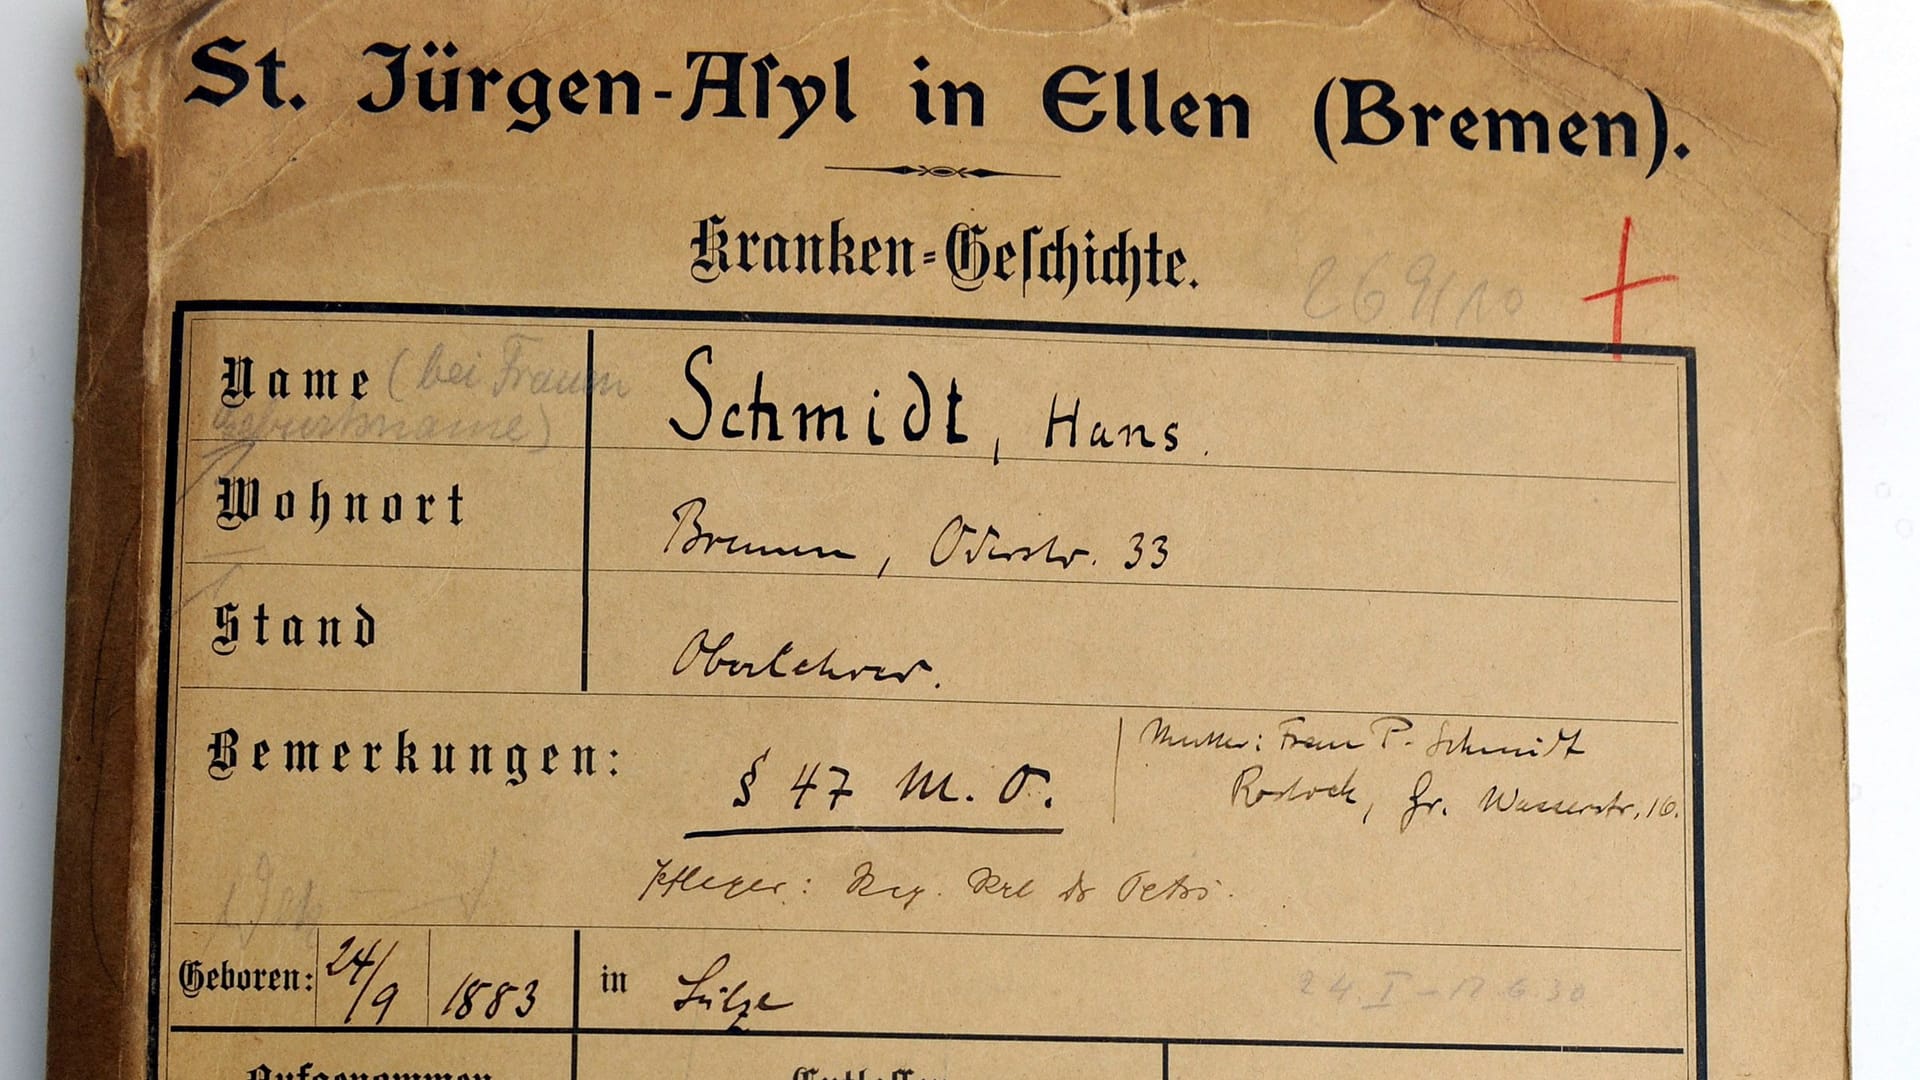 St. Jürgen-Aſyl in Ellen (Bremen).
Kranken-Geſchichte.
Name (bei Frauen
Geburtsname)
Schmidt, Hans.
Wohnort
Bremen, Oderstr. 33
Stand
Oberlehrer.
Bemerkungen:
§ 47 M. O.
Mutter: Frau P. Schmidt
Rostock, Gr. Wasserstr. 16.
Pfleger: Reg. Dr Petri.
Geboren: 24/9 1883 in Sülze
24. I - 12 6. 30
Aufgenommen